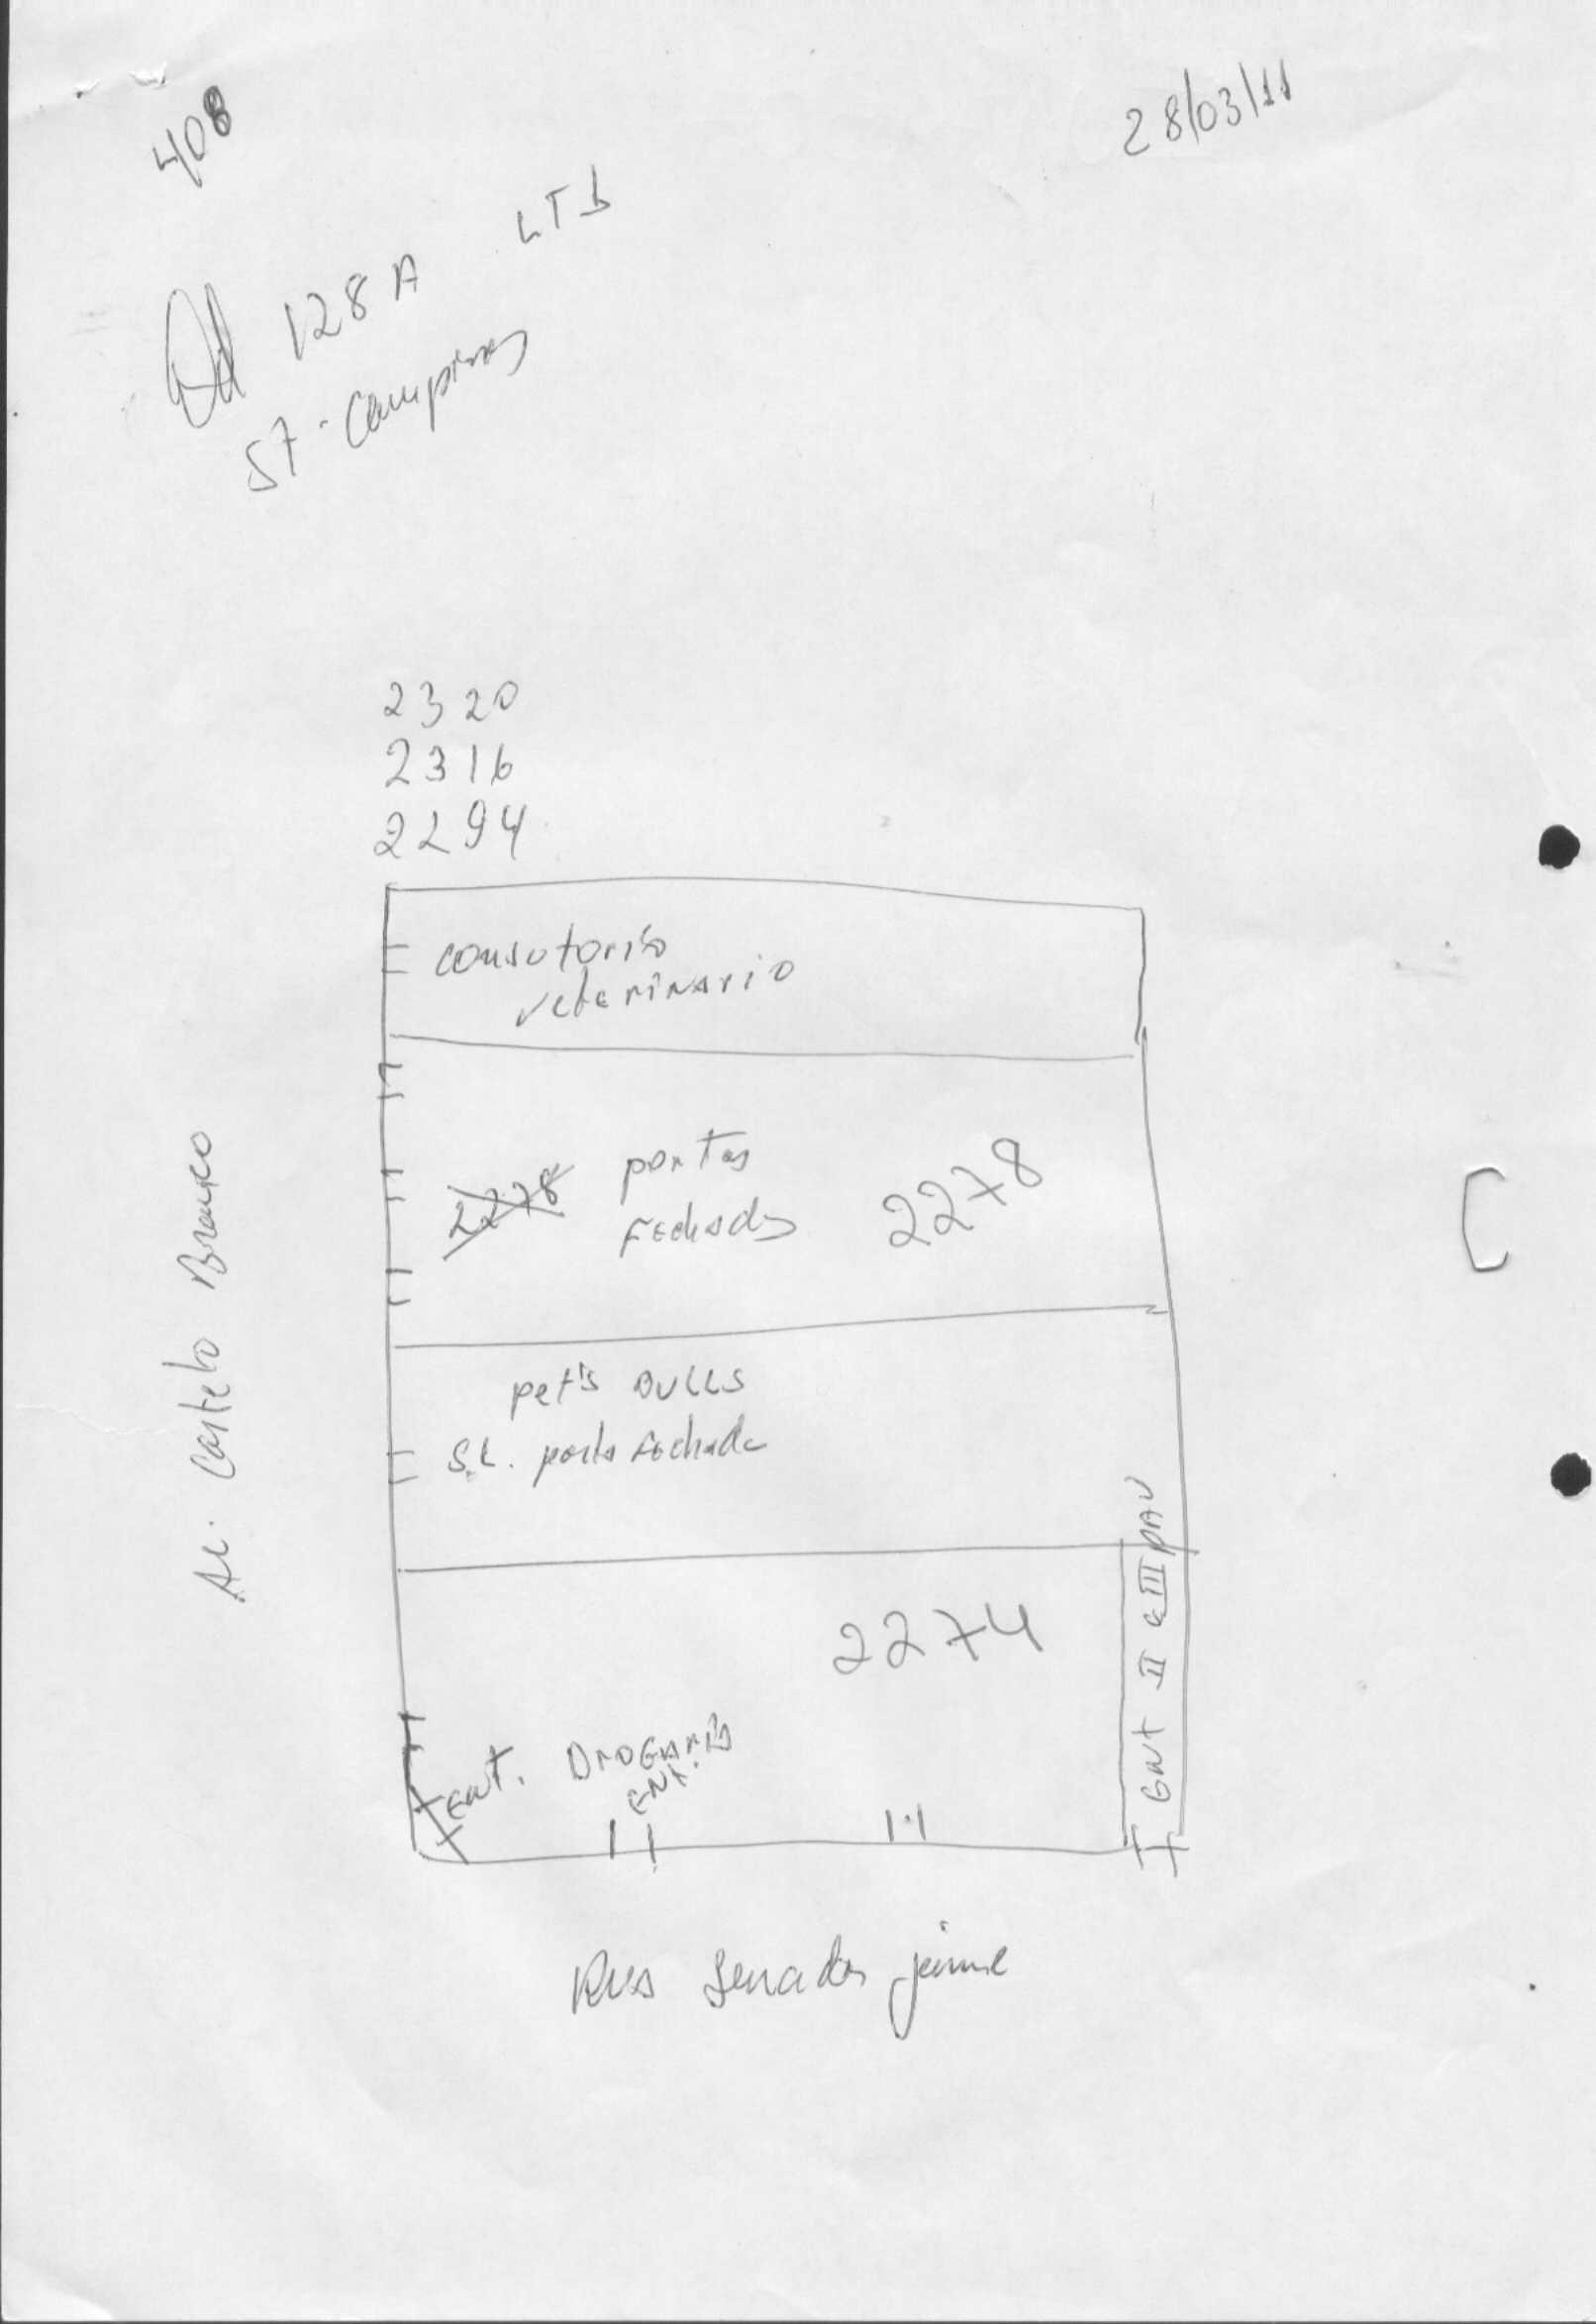 408
28/03/11
Qd 128A LT1
57-Campinas
2320
2316
2294
consutorio
veterinario
2278 portas
Fechadas 2278
pet's BULLS
S.L. porta Fechada
2274
Ent. DroGAriA
Ent.
Ent II e III pAV
Av. Castelo Branco
Rua Senador jaime